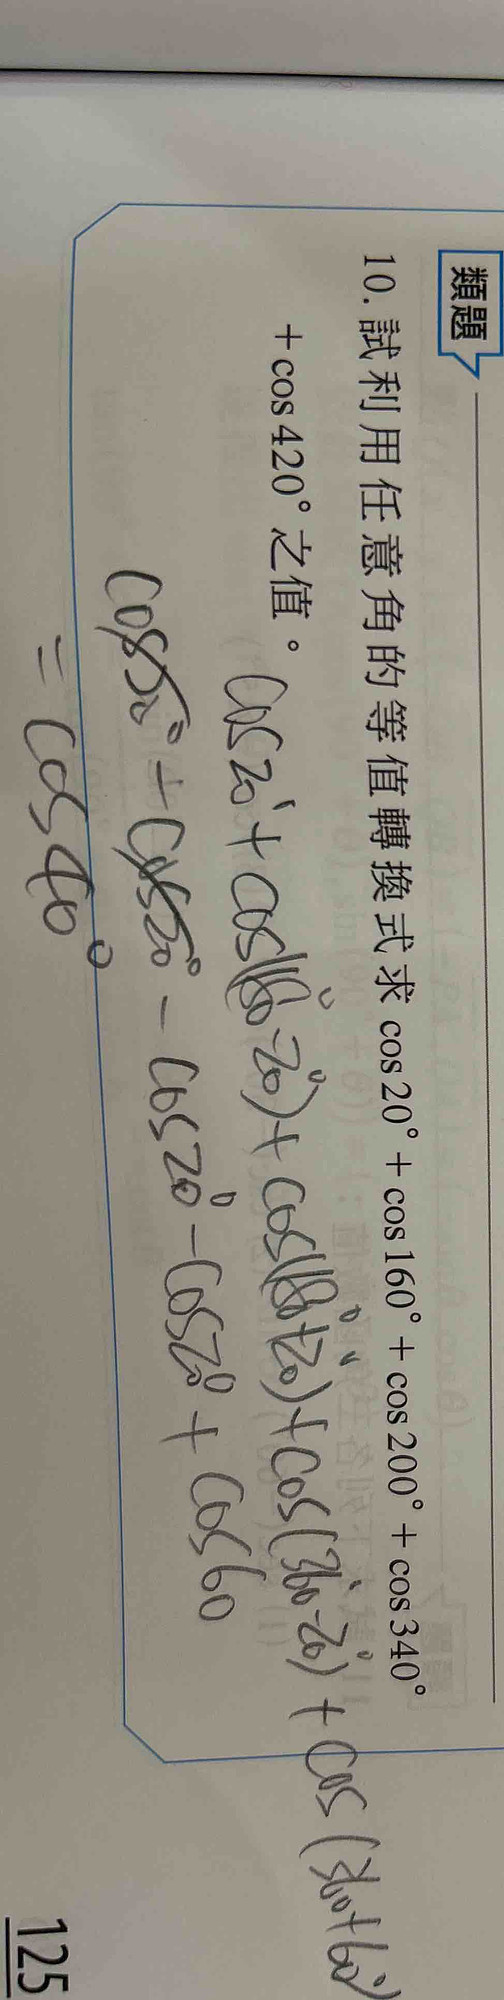 類題
10. 試利用任意角的等值轉換式求 cos 20° + cos 160° + cos 200° + cos 340°
+ cos 420° 之值。
cos20° + cos(180°-20°) + cos(180°+20°) + cos(360°-20°) + cos(360+60°)
cos20° + cos20° - cos20° - cos20° + cos60
= cos40°
125